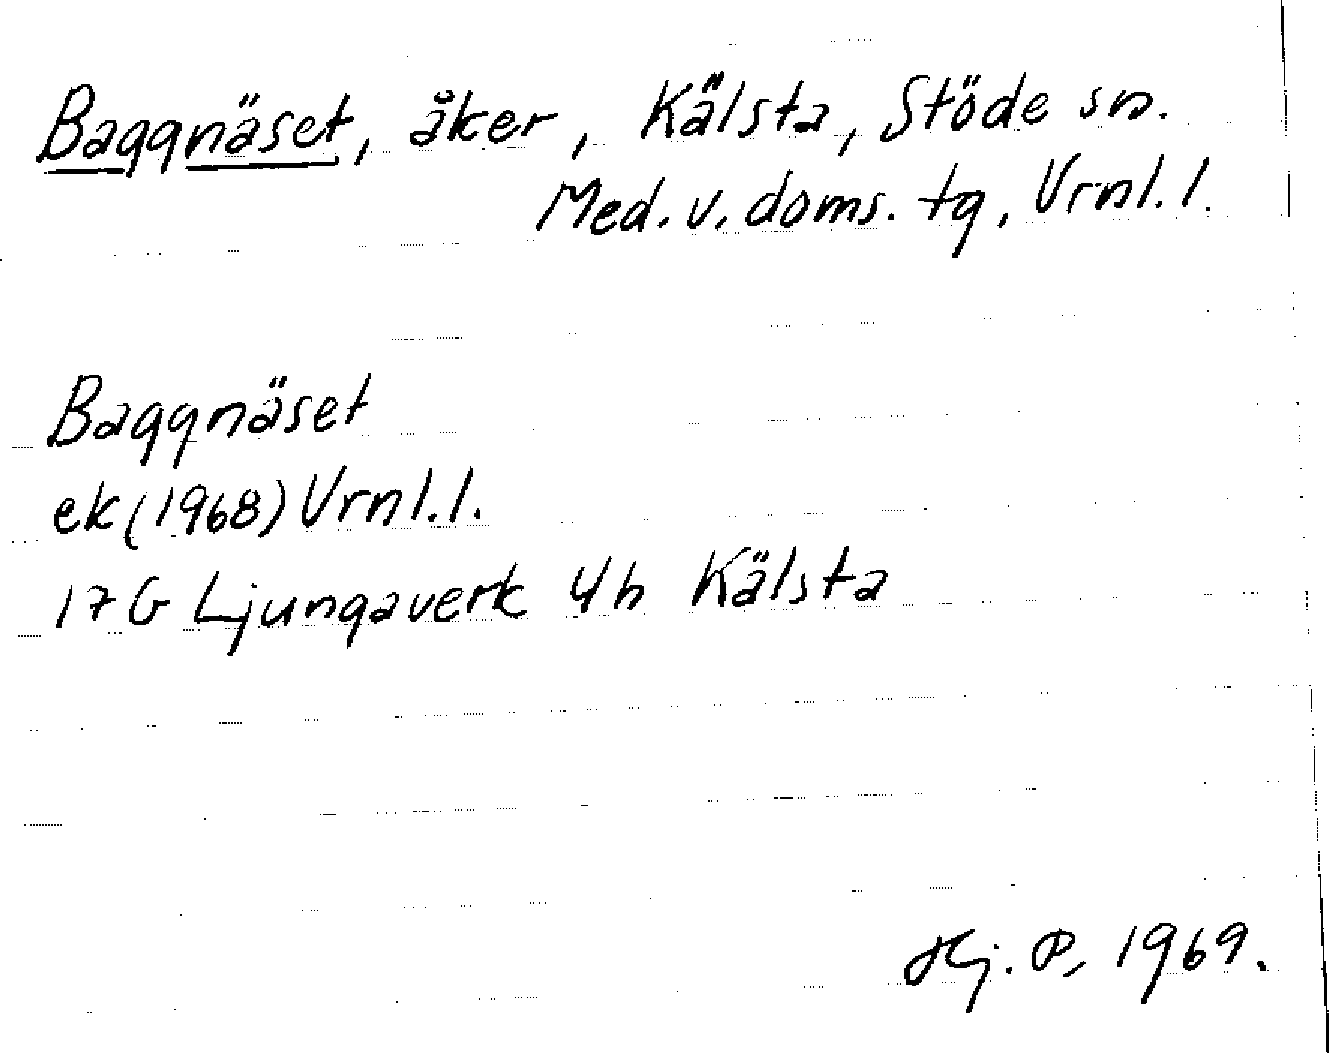 Baggnäset, åker, Kälsta, Stöde sn.
Med. v. doms. tg, Vrnl. l.
Baggnäset
ek (1968) Vrnl. l.
17 G Ljungaverk 4h Kälsta
Hj. P, 1969.